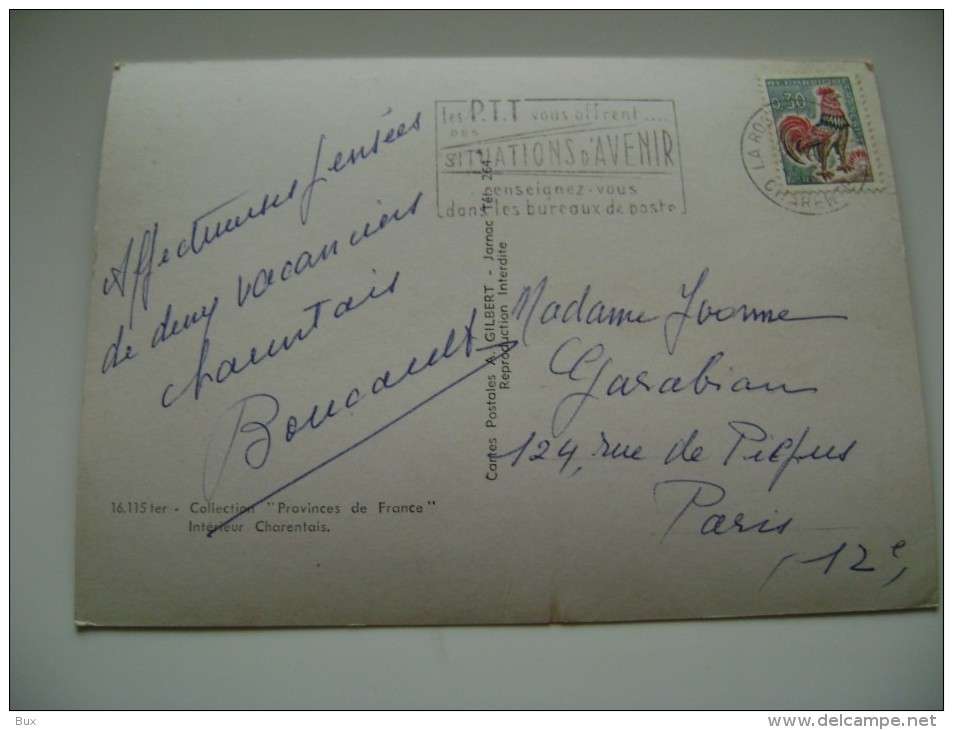 Affectueuses pensées
de deux vacanciers
charentais
Boucault
16.115 ter - Collection "Provinces de France"
Intérieur Charentais.
Cartes Postales A. GILBERT - Jarnac Tél. 264
Reproduction Interdite
les P.T.T vous offrent....
DES
SITUATIONS D'AVENIR
enseignez-vous
dans les bureaux de poste
0,30
LA RO
CHAREN
Madame Yvonne
Garabian
124, rue de Picpus
Paris
(12e)
Bux
delcampe.net